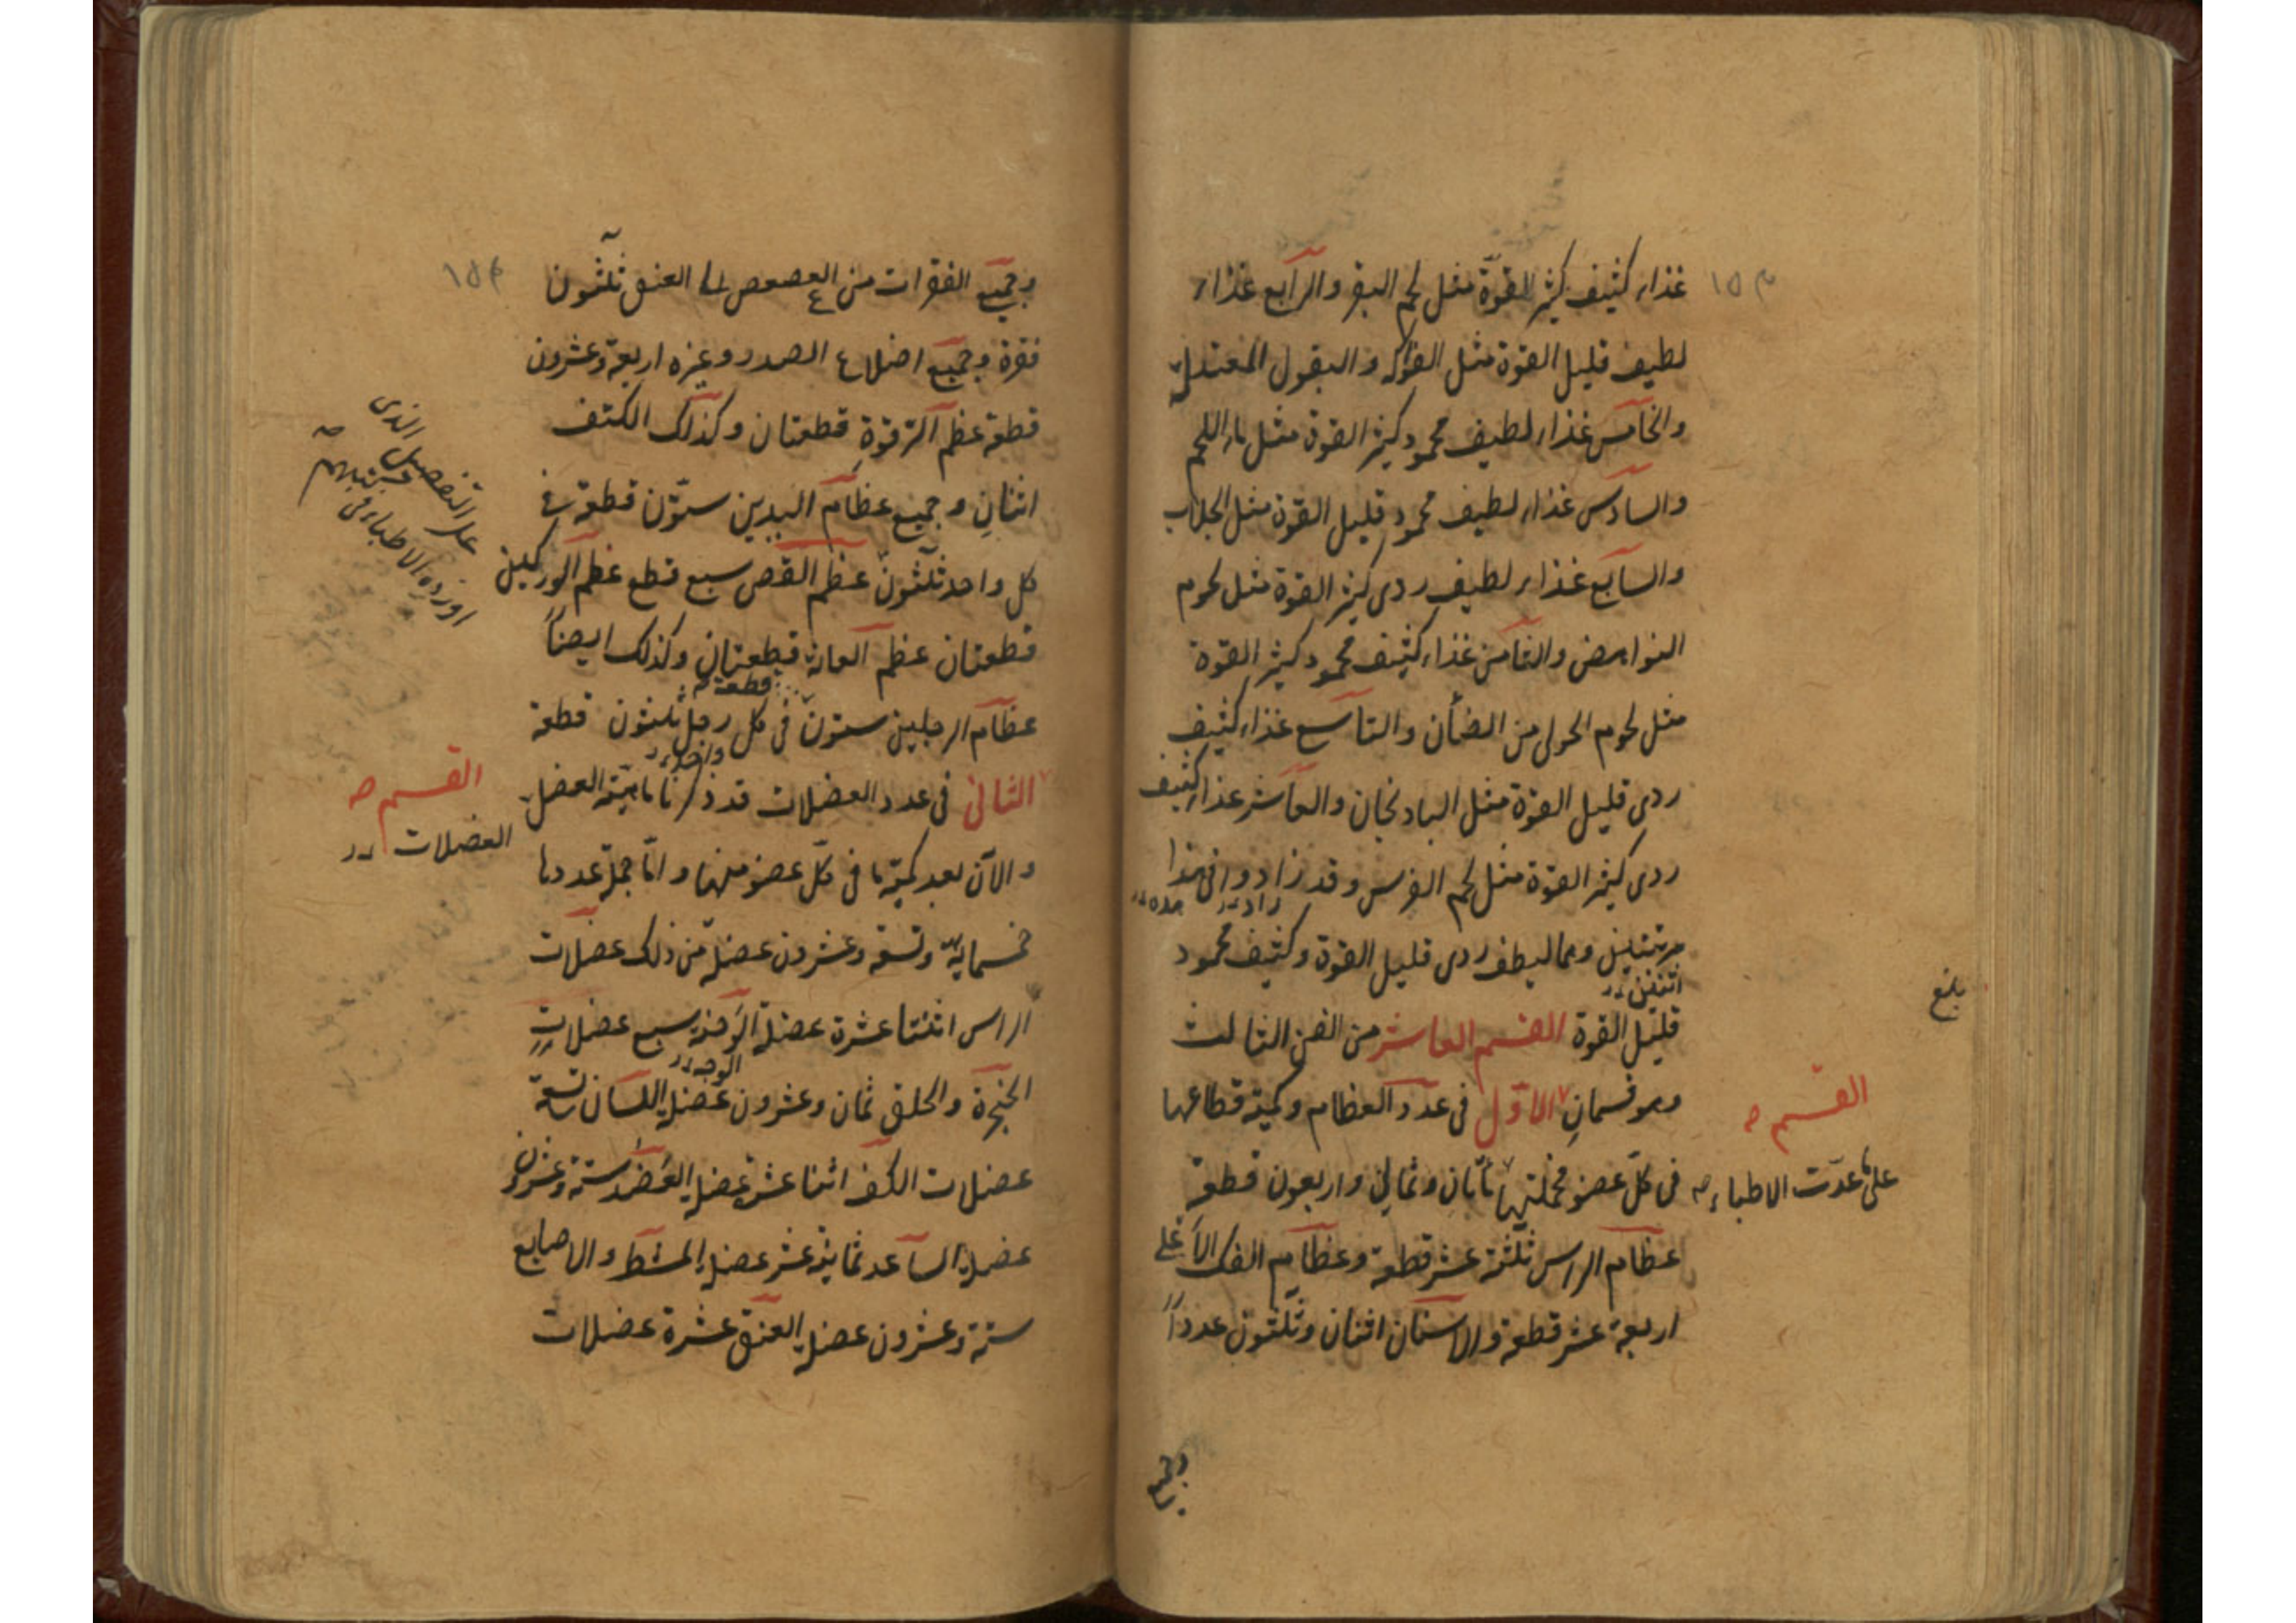 غذاء كثيف كثير القوة مثل لحم البقر والرابع غذاء
لطيف قليل القوة مثل الفواكه والبقول المعتدلة
والخامس غذاء لطيف محمود كثير القوة مثل ماء اللحم
والسادس غذاء لطيف محمود قليل القوة مثل الجلاب
والسابع غذاء لطيف ردى كثير القوة مثل لحوم
النواهض والثامن غذاء كثيف محمود كثير القوة
مثل لحوم الحولى من الضأن والتاسع غذاء كثيف
ردى قليل القوة مثل البادنجان والعاشر غذاء كثيف
ردى كثير القوة مثل لحم الفرس وقد زادوا فى هذا
مرتبتين وهما لطيف ردى قليل القوة وكثيف محمود
قليل القوة القسم العاشر من الفن الثالث
وهو قسمان الاول فى عدد العظام وكمية قطاعها
فى كل عضو فجملتها مأتان وثمانى واربعون قطعة
عظام الراس ثلثة عشر قطعة وعظام الفك الاعلى
اربعة عشر قطعة والاسنان اثنان وثلثون عددا
وجميع
القسم صه
على ما عدت الاطباء صه
بلغ
وجميع الفقرات من العصعص الى العنق ثلثون
فقرة وجميع اضلاع الصدر وغيره اربعة وعشرون
قطعة عظم الترقوة قطعتان وكذلك الكتف
اثنان وجميع عظام اليدين ستون قطعة فى
كل واحد ثلثون عظم القص سبع قطع عظم الوركين
قطعتان عظم العانة قطعتان وكذلك ايضاً
عظام الرجلين ستون فى كل رجل ثلثون قطعة
الثانى فى عدد العضلات قد ذكرنا ماهية العضل
والآن بعد كميتها فى كل عضو منها واما جملة عددها
خمسماية وتسعة وعشرون عضلة من ذلك عضلات
الراس اثنتا عشرة عضلة الوجنة سبع عضلات
الحنجرة والحلق ثمان وعشرون عضلة اللسان تسعة
عضلات الكتف اثنا عشر عضلة العضد ستة وعشرون
عضلة الساعد ثمانية عشر عضلة المشط والاصابع
ستة وعشرون عضلة العنق عشرة عضلات
على التفصيل الذى
اورده الاطباء فى كتبهم صه
القسم صه
العضلات